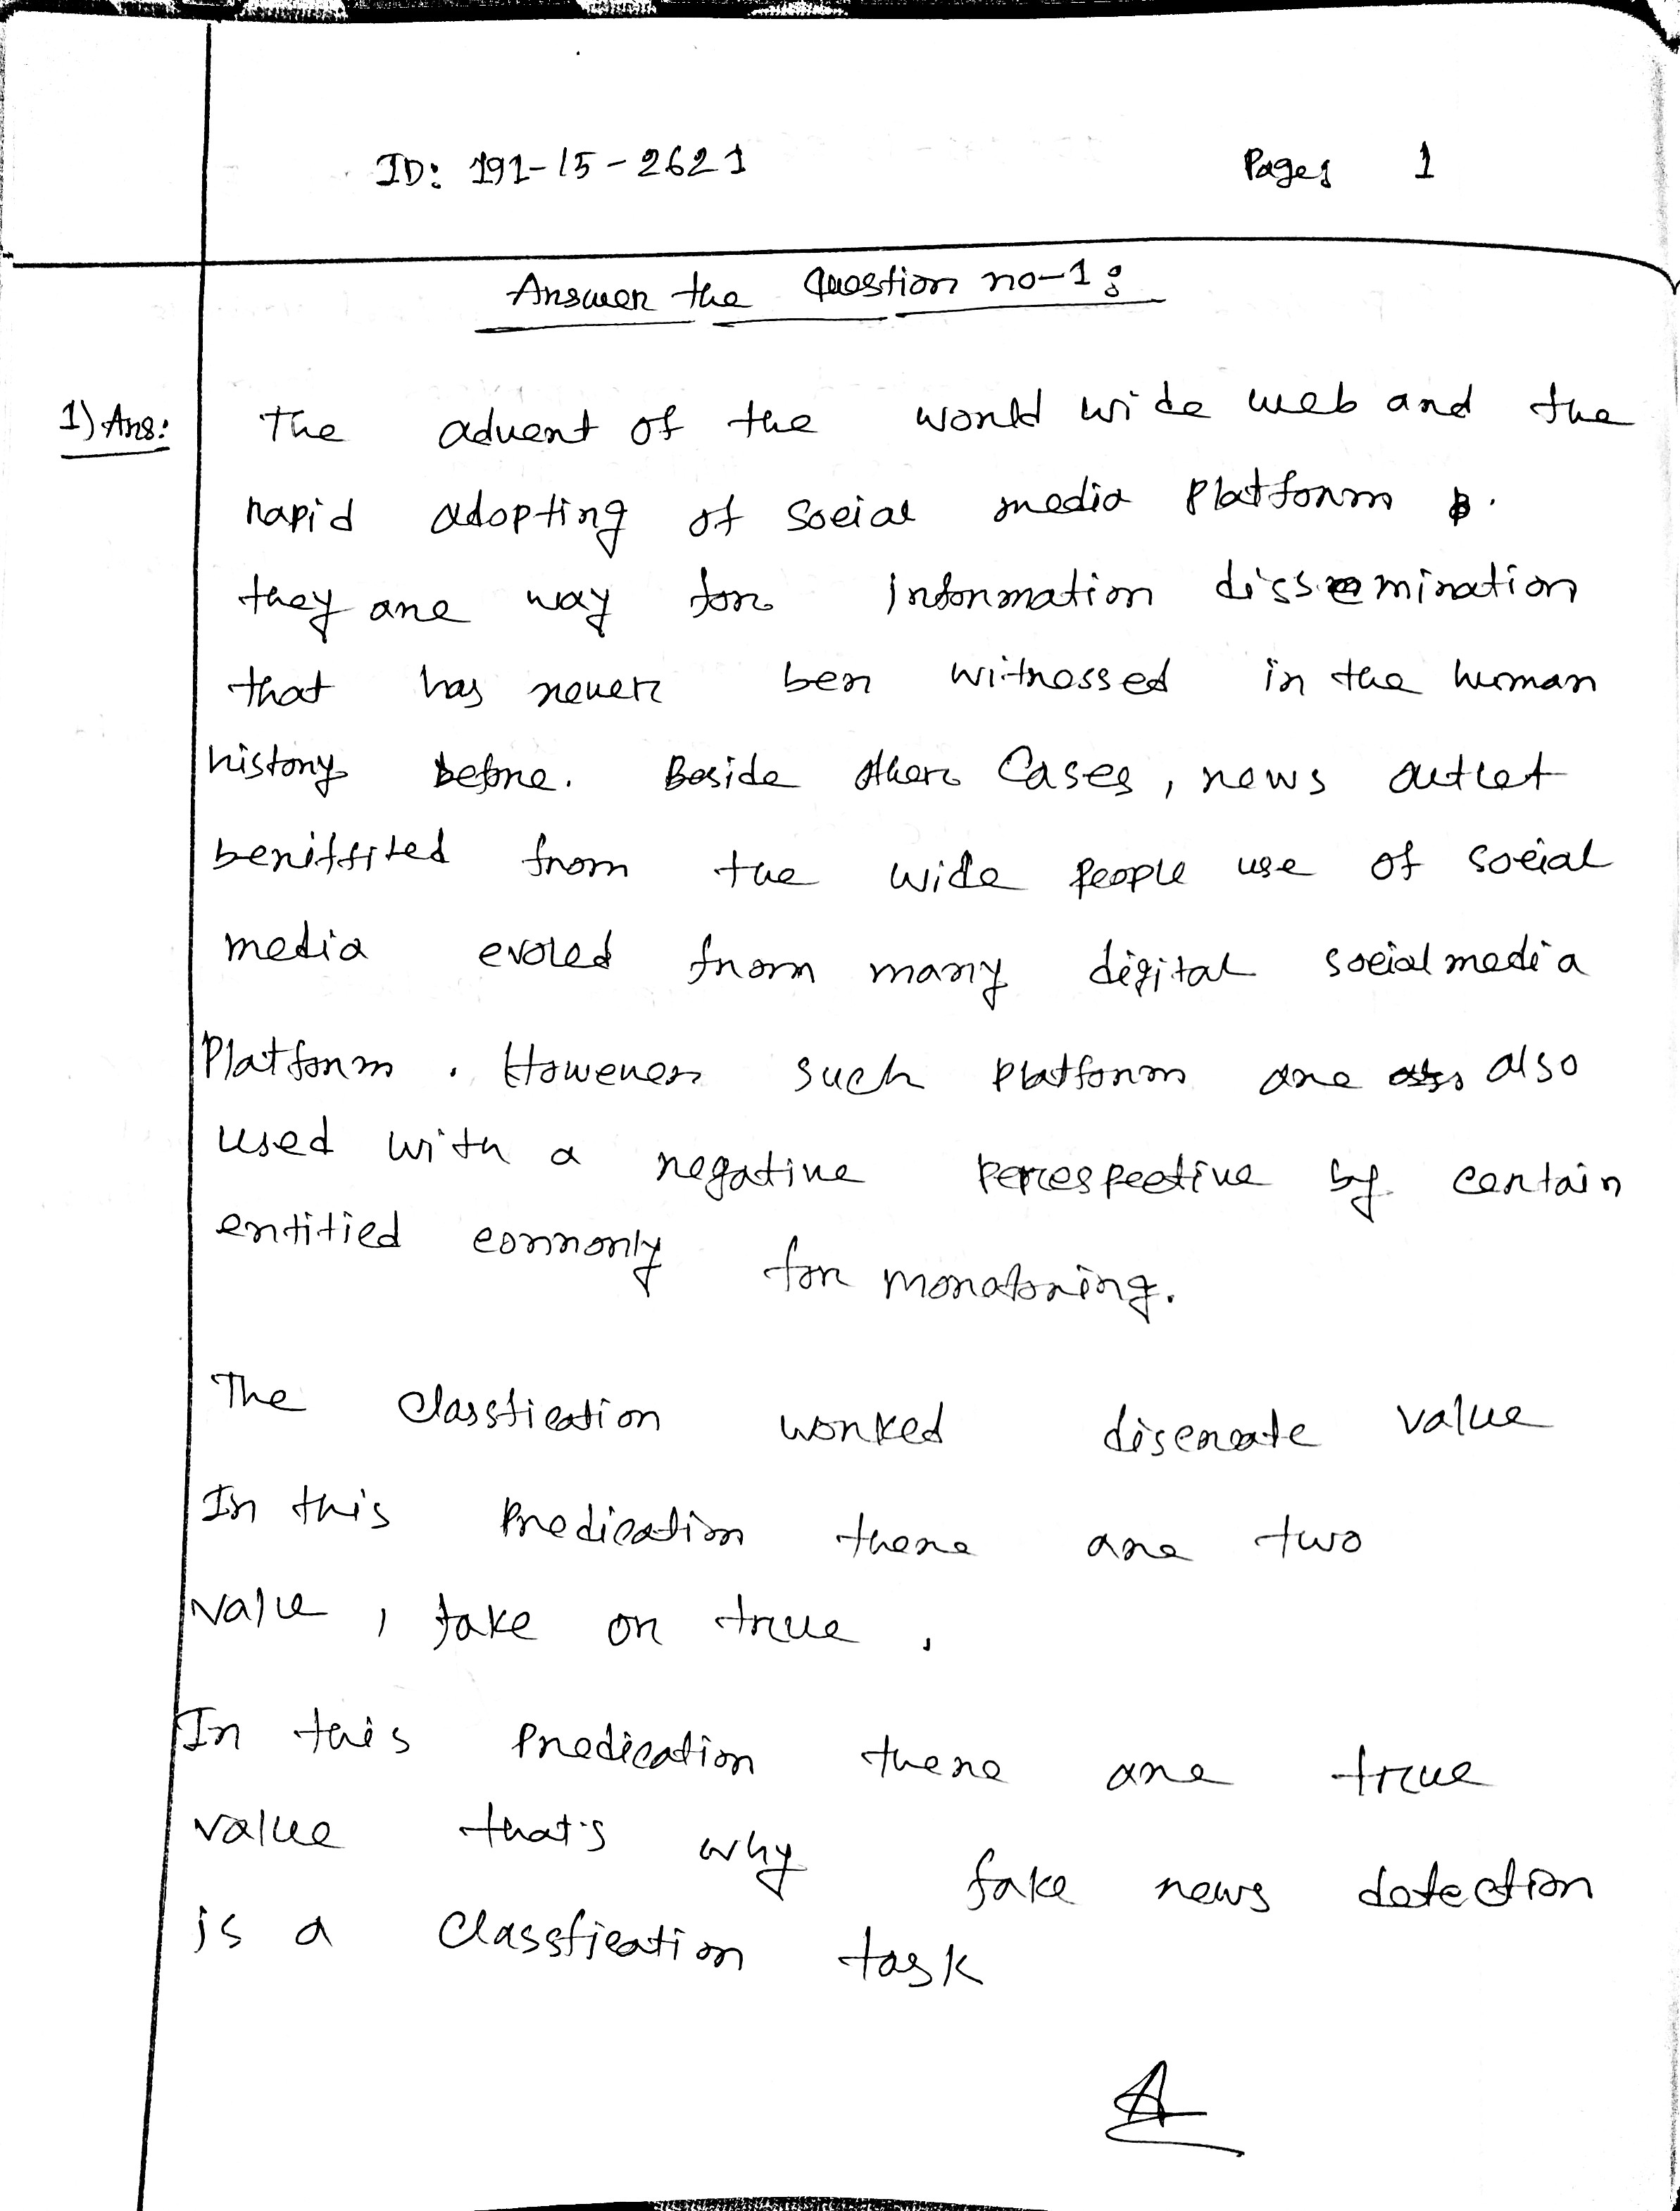 ID: 191-15-2621
Pages 1
Answer the Question no-1:
1) Ans: The advent of the world wide web and the
rapid adopting of social media Platform
they are way for information dissemination
that has never ben witnessed in the human
history before. Beside other Cases, news outlet
beniffited from the wide people use of social
media evoled from many digital social media
Platform. However such platform are also
used with a negative perespective by certain
entitied commonly for monatoring.
The classfication worked discreate value
In this Predication there are two
value, fake or true.
In this Predication there are true
value that's why fake news detection
is a Classfication task